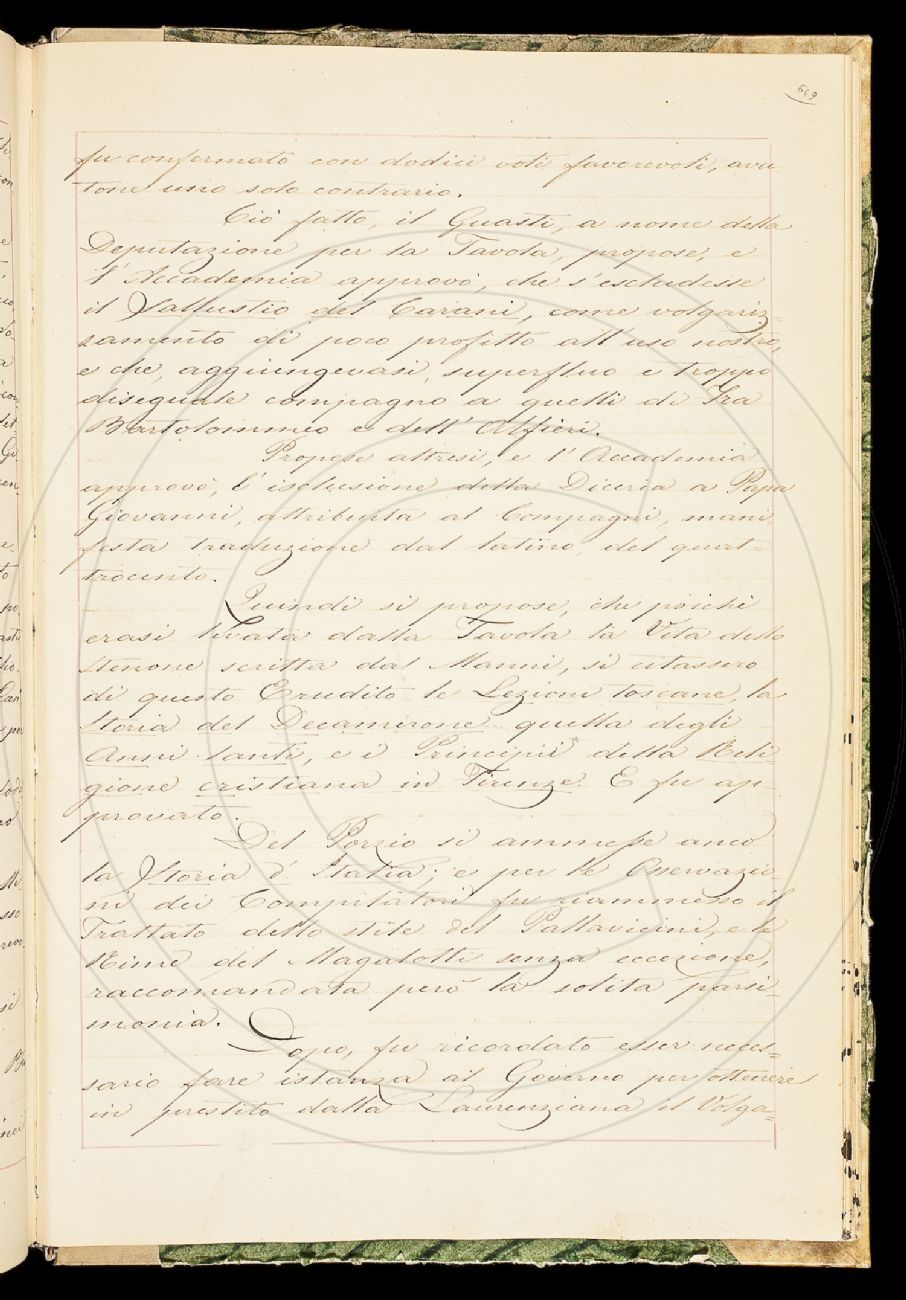 649
fu confermato con dodici voti favorevoli, avu
tone uno solo contrario.
Ciò fatto, il Guasti, a nome della
Deputazione per la Tavola, propose, e
l'Accademia approvò, che s'escludesse
il Sallustio del Carani, come volgariz=
zamento di poco profitto all'uso nostro,
e che, aggiungevasi, superfluo e troppo
diseguale compagno a quelli di Fra
Bartolommeo e dell'Alfieri.
Propose altresì, e l'Accademia
approvò, l'esclusione della Diceria a Papa
Giovanni, attribuita al Compagni, mani=
festa traduzione dal latino, del quat=
trocento.
Quindi si propose, che poichè
erasi levata dalla Tavola la Vita dello
Stenone scritta dal Manni, si citassero
di questo Erudito le Lezioni toscane, la
Storia del Decamerone quella degli
Anni Santi, e i Principii della Reli=
gione cristiana in Firenze. E fu ap=
provato.
Del Porzio si ammesse anco
la Storia d'Italia; e per le Osservazio
ni dei Compilatori fu riammesso il
Trattato dello stile del Pallavicini, e le
Rime del Magalotti senza eccezione,
raccomandata però la solita parsi=
monia.
Dopo, fu ricordato esser neces=
sario fare istanza al Governo per ottenere
in prestito dalla Laurenziana il Volga=